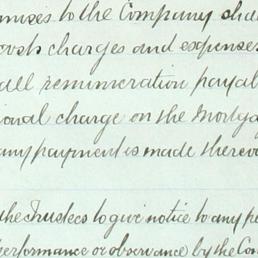 mises to the Company sha
costs charges and expenses
all remuneration payal
ional charge on the Mortga
any payment is made thereo
the Trustees to give notice to any pe
performance or observance) by the Con